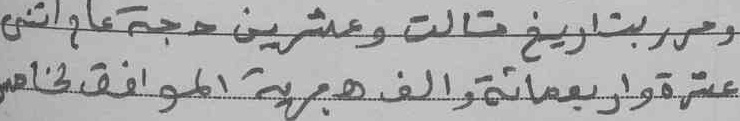 وحرر بتاريخ ثالث وعشرين حجة عام اثني
عشرة واربعمائة والف هجرية الموافق لخامس